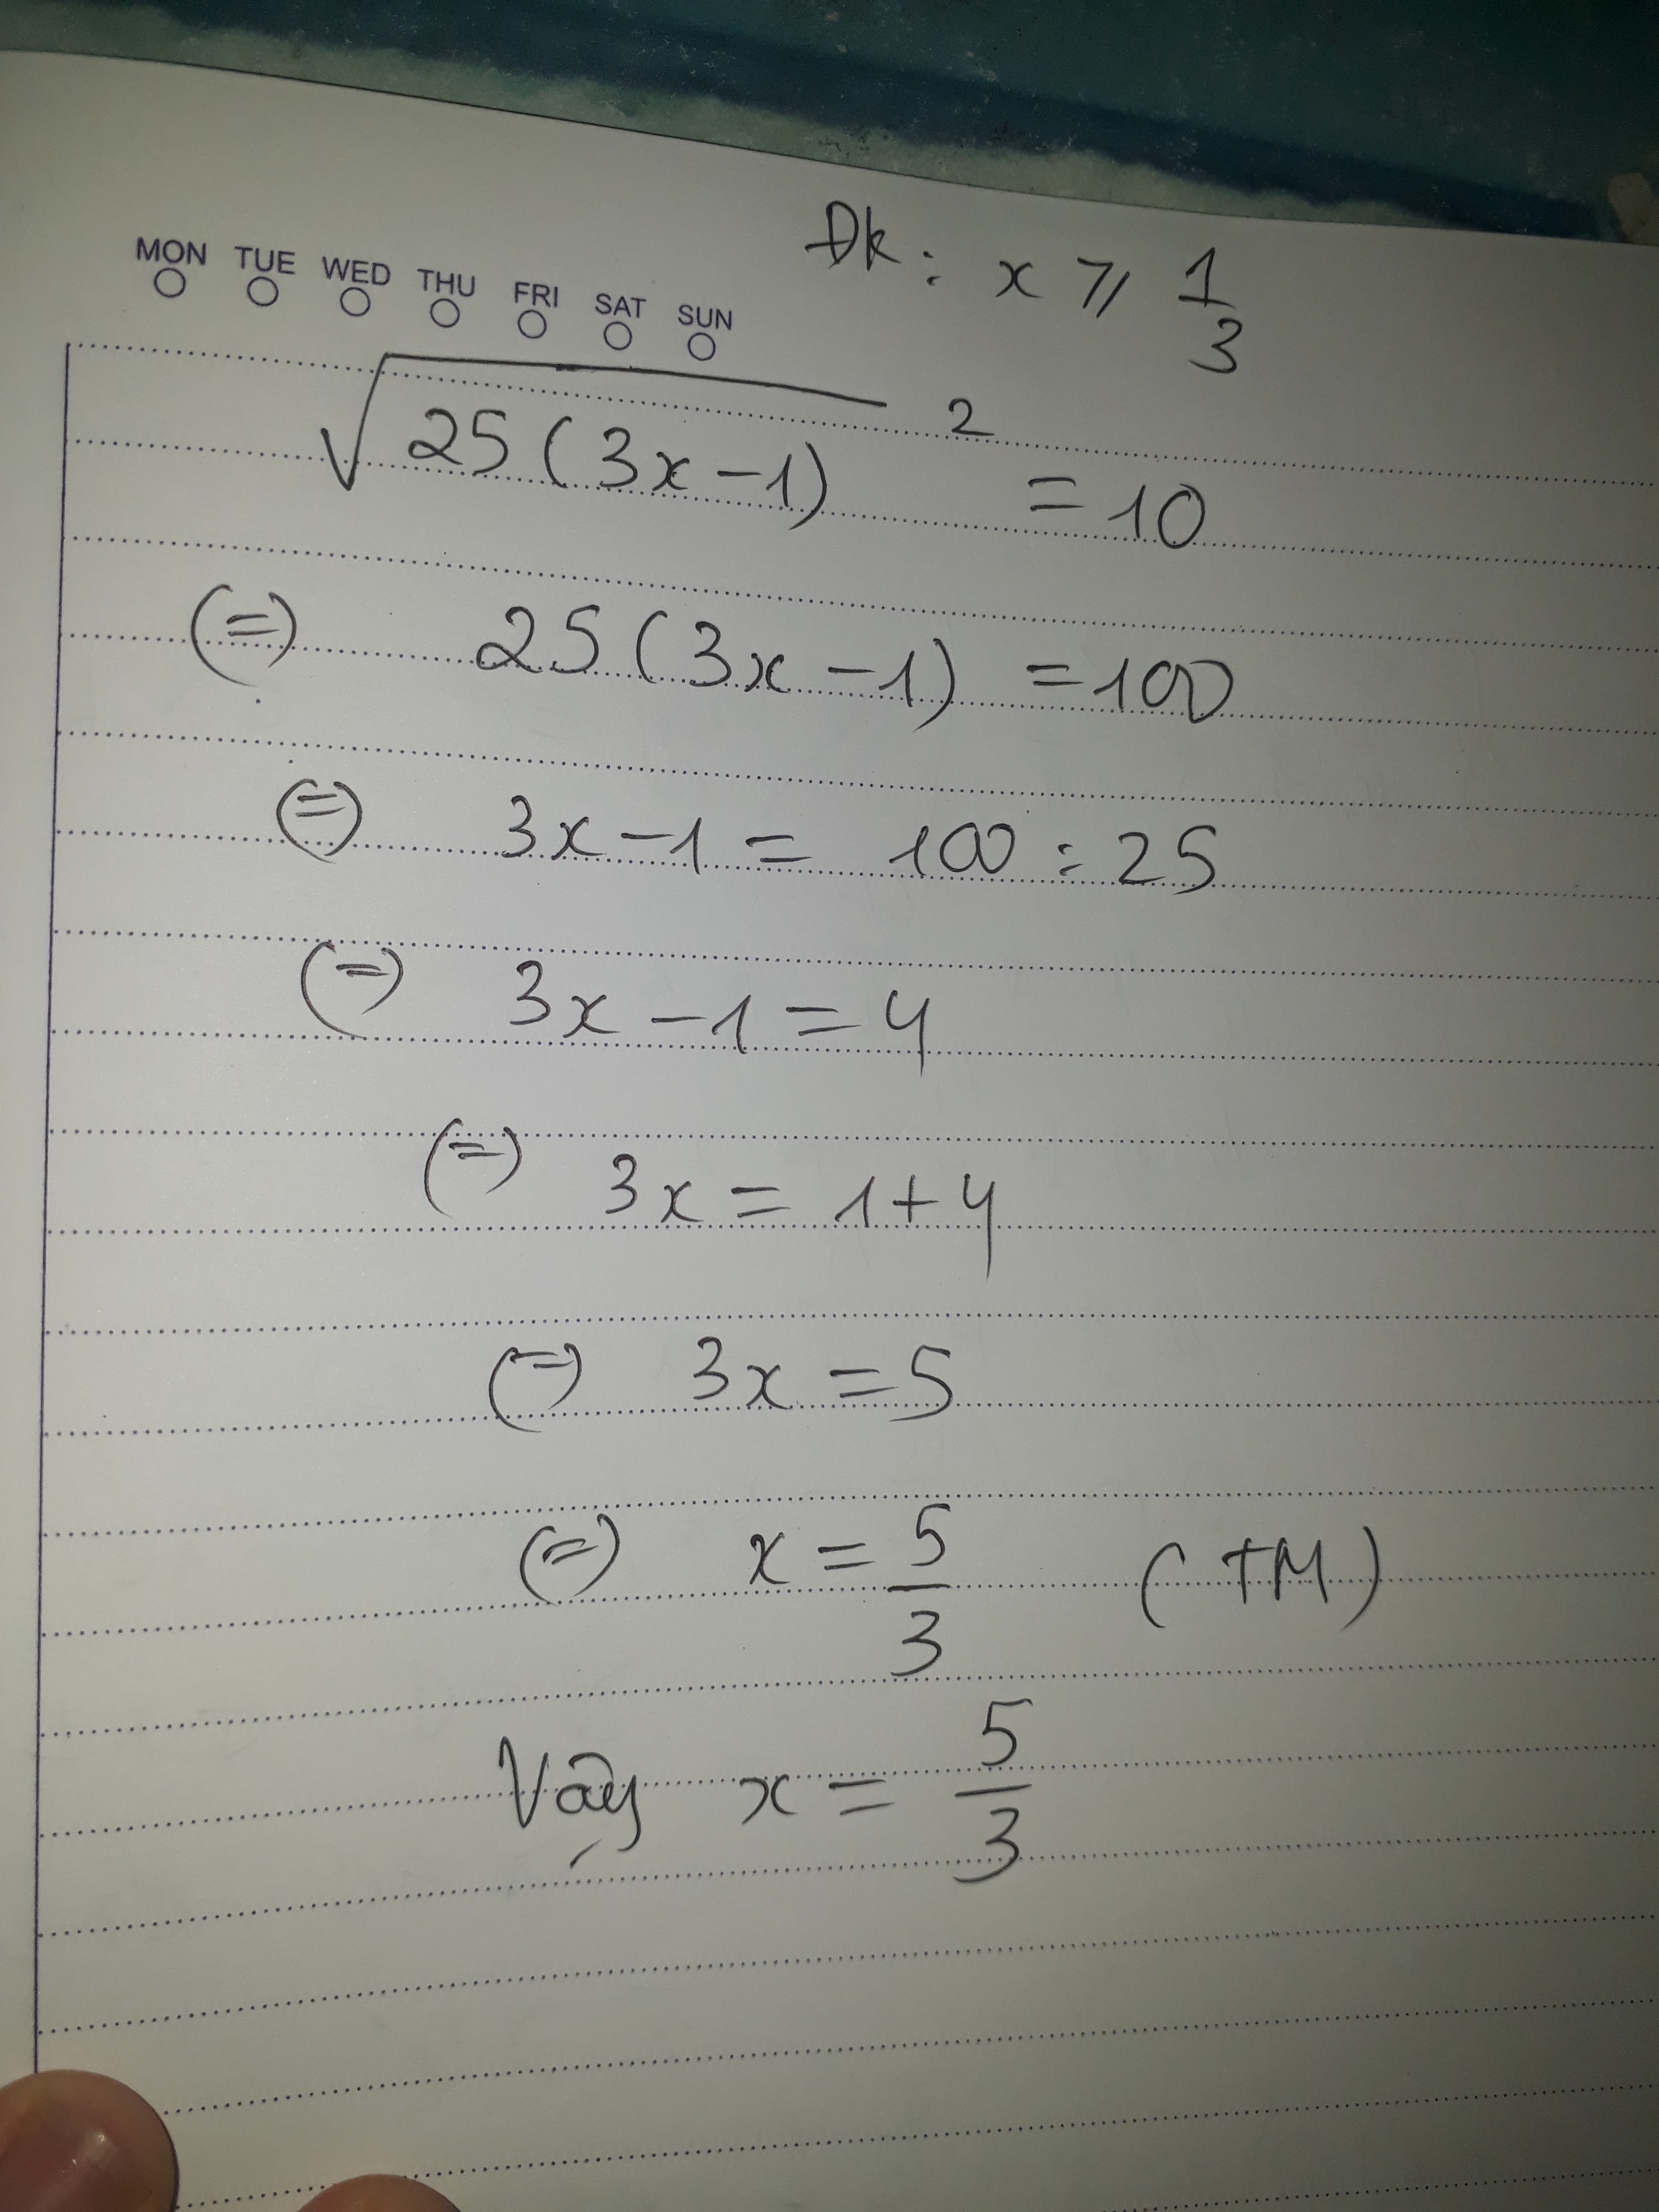 Đk: x ≥ 1/3
MON TUE WED THU FRI SAT SUN
√25(3x-1) ² = 10
(=) 25(3x-1) = 100
(=) 3x-1 = 100 : 25
(=) 3x-1 = 4
(=) 3x = 1+4
(=) 3x = 5
(=) x = 5/3 (TM)
Vậy x = 5/3